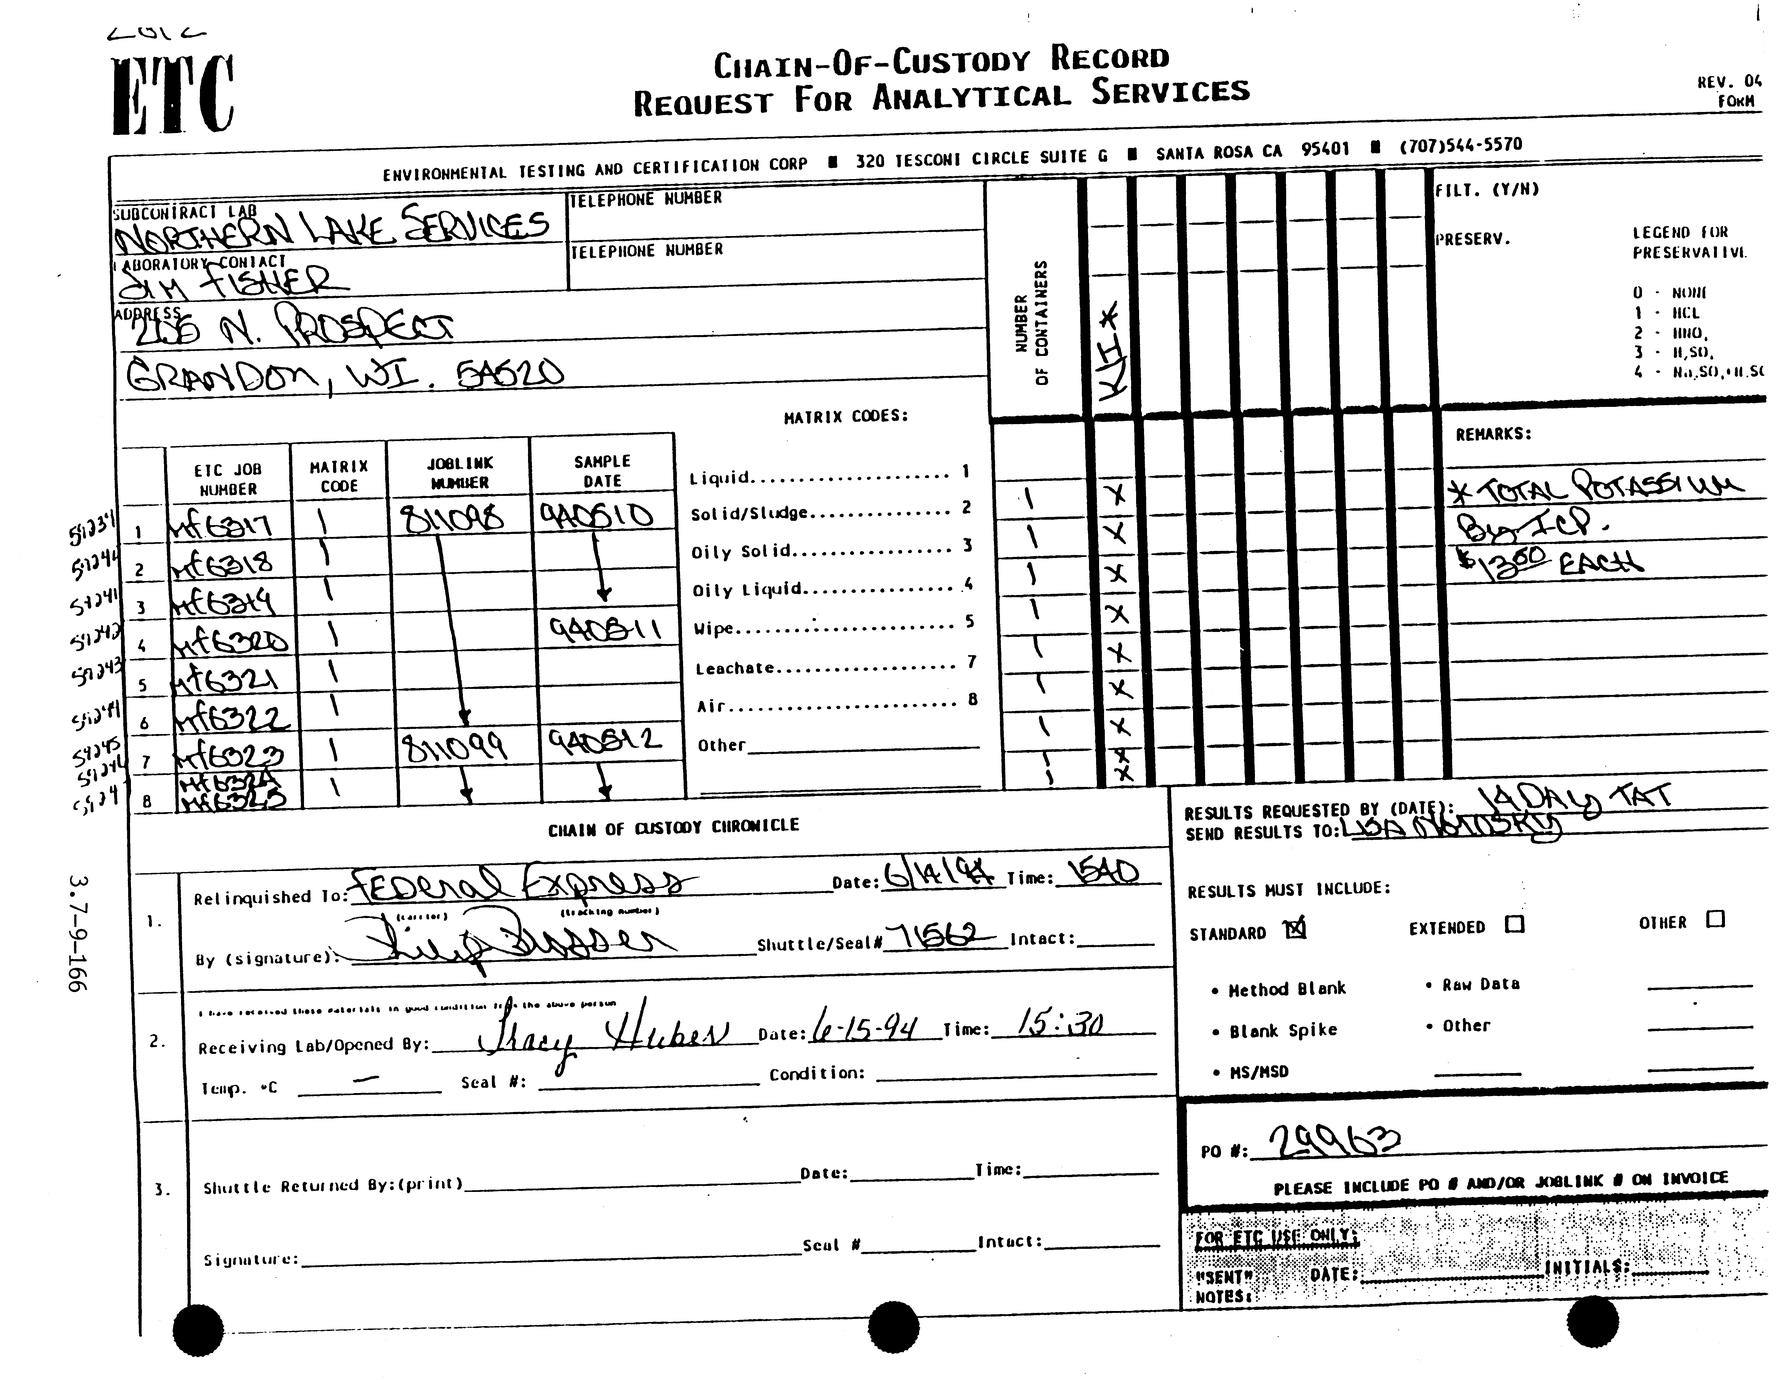 ETC
CHAIN-OF-CUSTODY RECORD
REQUEST FOR ANALYTICAL SERVICES
REV. 04
FORM
ENVIRONMENTAL TESTING AND CERTIFICATION CORP ■ 320 TESCONI CIRCLE SUITE G ■ SANTA ROSA CA 95401 ■ (707)544-5570
SUBCONTRACT LAB
NORTHERN LAKE SERVICES
TELEPHONE NUMBER
LABORATORY CONTACT
JIM FISHER
TELEPHONE NUMBER
ADDRESS
N. PROSPECT
GRANDON, WI. 54520
NUMBER
OF CONTAINERS
K/I*
FILT. (Y/N)
PRESERV.
LEGEND FOR
PRESERVATIVE
0 - NONE
1 - HCL
2 - HNO,
3 - H,SO,
4 -
MATRIX CODES:
Liquid 1
Solid/Sludge 2
Oily Solid 3
Oily Liquid 4
Wipe 5
Leachate 7
Air 8
Other
ETC JOB NUMBER MATRIX CODE JOBLINK NUMBER SAMPLE DATE
1 Mf6317 1 811098 940510 1 X
2 Mf6318 1 1 X
3 Mf6319 1 1 X
4 Mf6320 1 940511 1 X
5 Mf6321 1 1 X
6 Mf6322 1 1 X
7 Mf6323 1 811099 940512 1 X
8 Mf6324 1 1 X
Mf6325 1 X
REMARKS:
* TOTAL POTASSIUM
By ICP.
$13.00 EACH
CHAIN OF CUSTODY CHRONICLE
RESULTS REQUESTED BY (DATE): 14 DAY TAT
SEND RESULTS TO: LISA
1.
Relinquished To: FEDeral Express Date: 6/14/94 Time: 1540
(carrier) (tracking number)
By (signature): Shuttle/Seal# 71562 Intact:
2.
I have received these materials in good condition from the above person
Receiving Lab/Opened By: Tracy Huber Date: 6-15-94 Time: 15:30
Temp. °C — Seal #: Condition:
3.
Shuttle Returned By:(print) Date: Time:
Signature: Seal # Intact:
RESULTS MUST INCLUDE:
STANDARD X EXTENDED OTHER
• Method Blank • Raw Data
• Blank Spike • Other
• MS/MSD
PO #: 29963
PLEASE INCLUDE PO # AND/OR JOBLINK # ON INVOICE
FOR ETC USE ONLY:
"SENT" DATE: INITIALS:
NOTES:
3.7-9-166